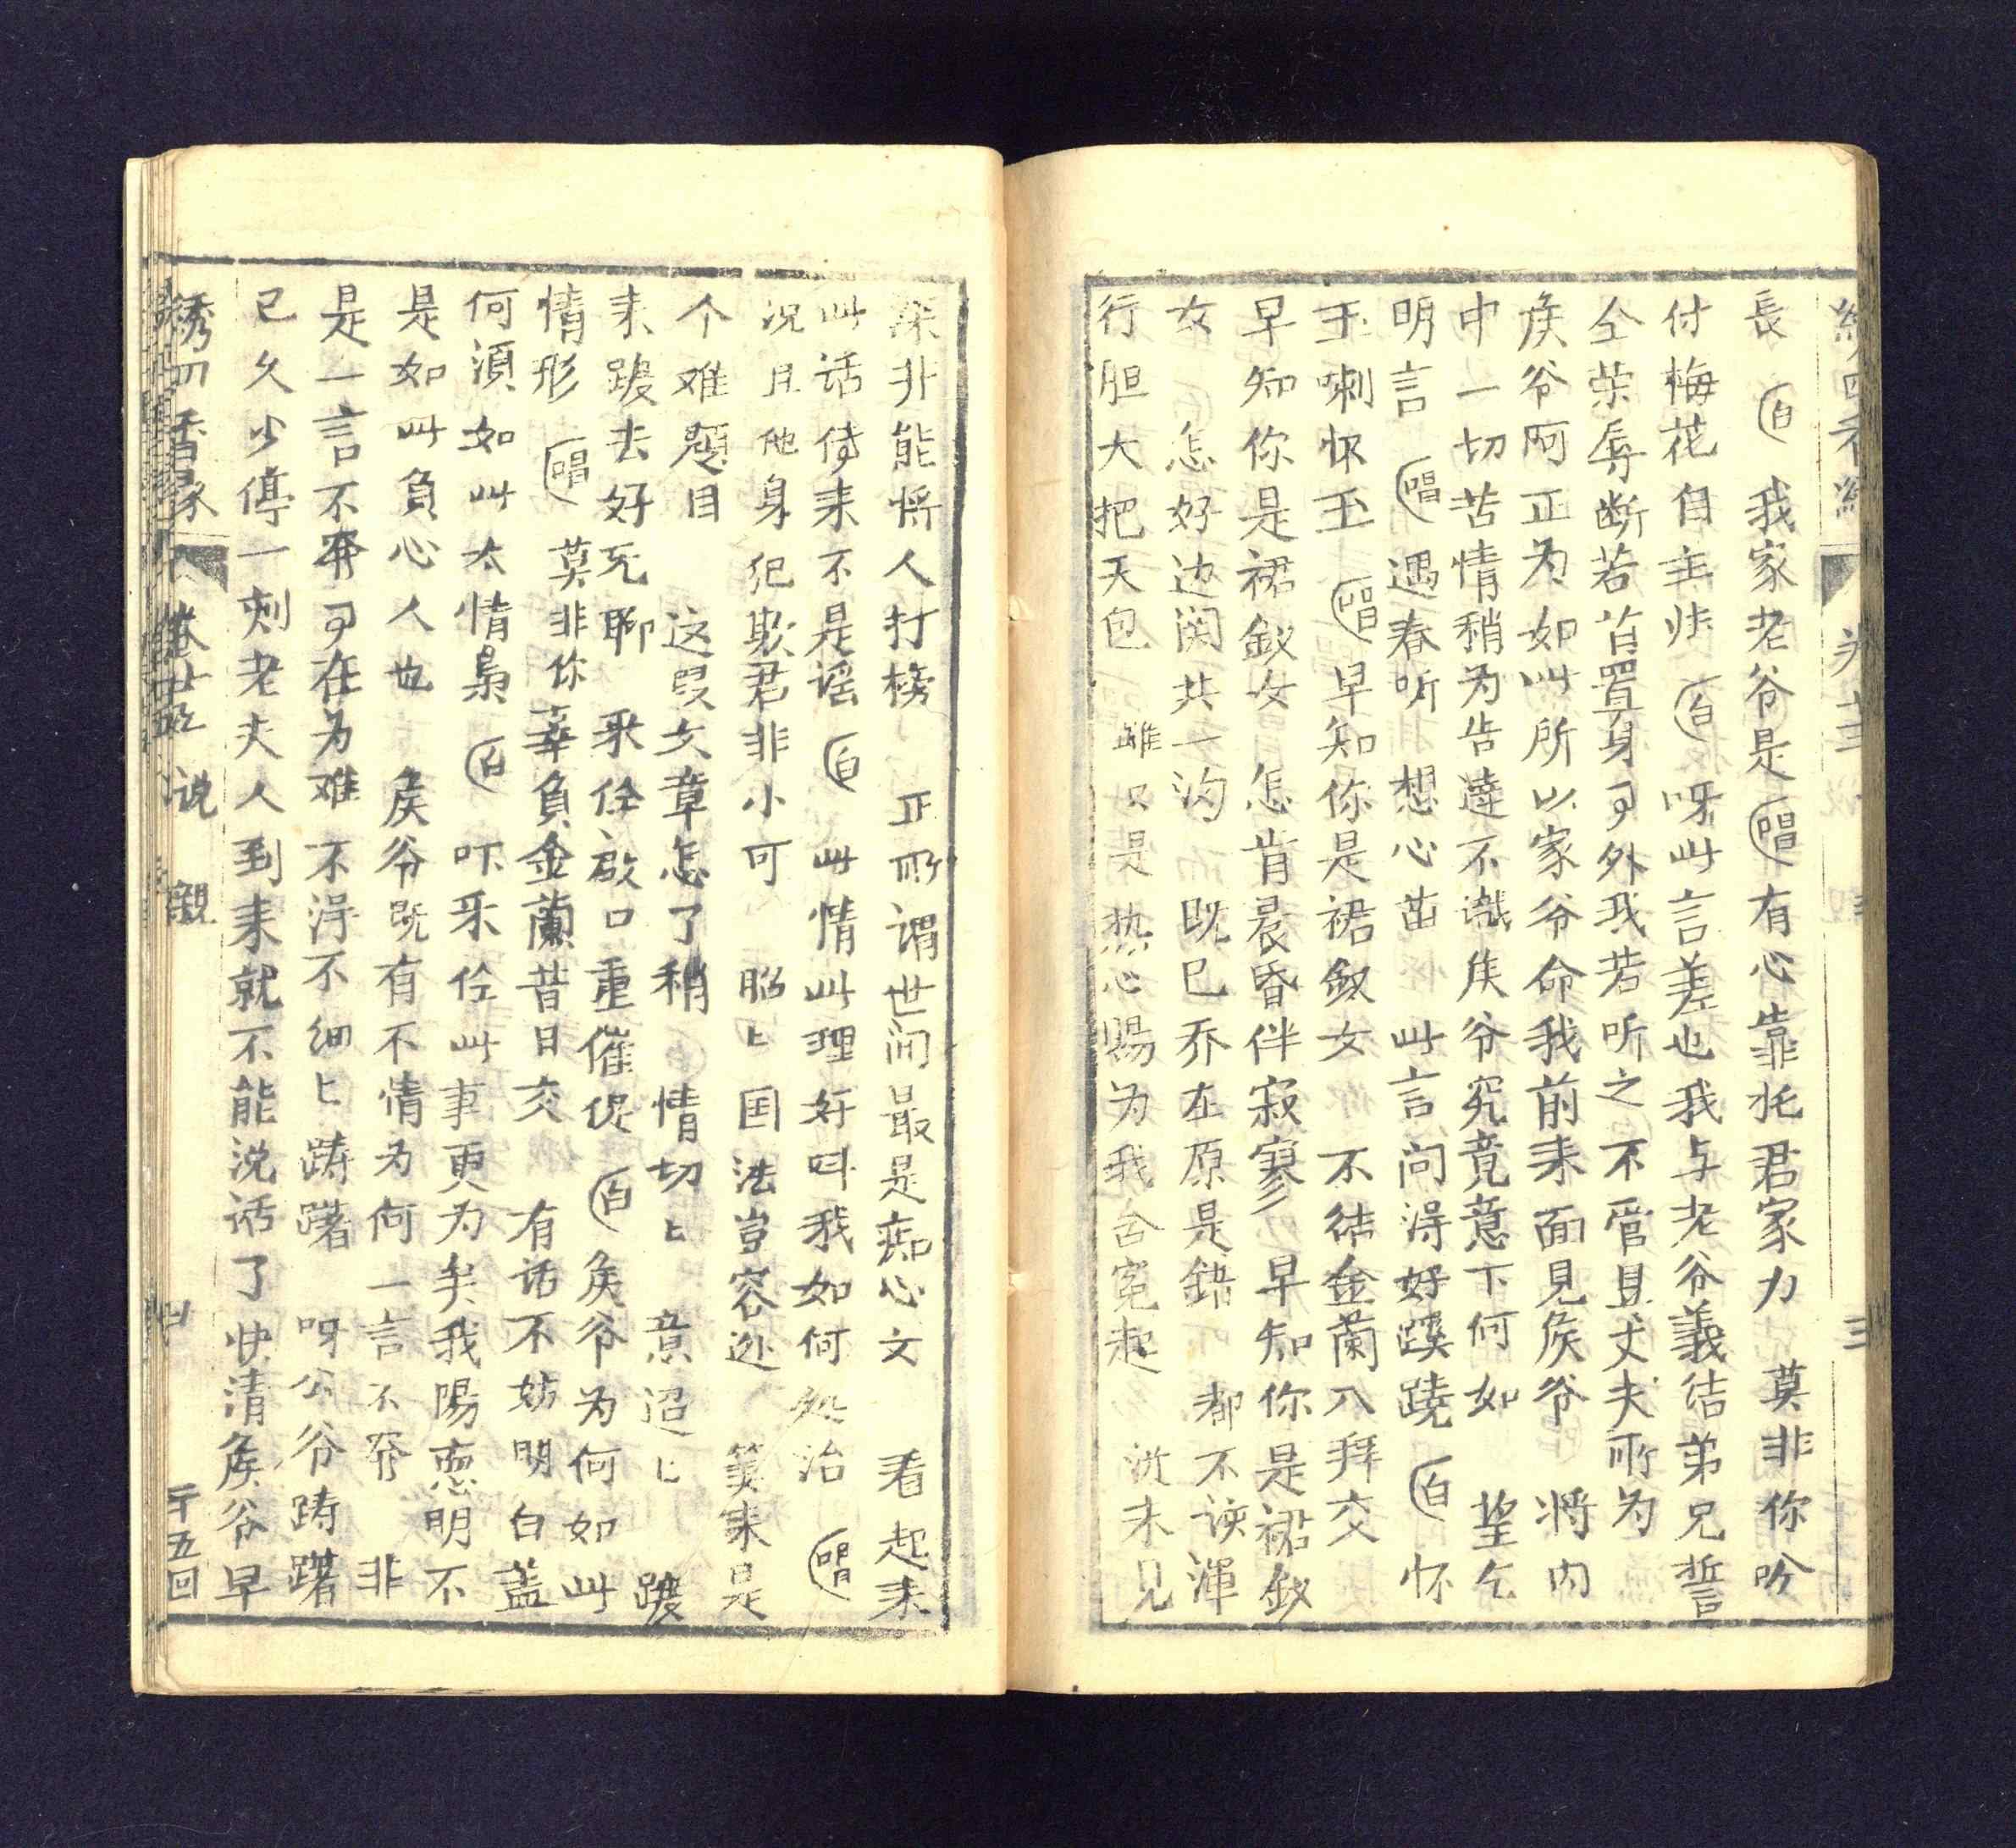 長 白 我家老爷是 唱 有心靠托君家力 莫非你吩
付梅花自主张 白 呀此言差也我与老爷義结弟兄誓
仝荣辱断若置身事外我若听之不管且丈夫所为
侯爷阿正为如此所以家爷命我前来面見侯爷 将内
中一切苦情稍为告達不識侯爷究竟意下何如 望乞
明言 唱 遇春听 想心苗 此言问得好蹊蹺 白 怀
玉喇怀玉 唱 早知你是裙釵女 不结金蘭八拜交
早知你是裙釵女 怎肯晨昏伴寂寥 早知你是裙釵
女 怎好边関共一沟 既已乔庄原是錯 都不该渾
行胆大把天包 雖只是热心腸为我含冤起 洗未見
深非能将人打榜 正所谓世间最是痴心女 看起来
此话倒来不是谣 白 此情此理好叫我如何处治 唱
况且他身犯欺君非小可 昭ヒ国法岂容逃 算来是
个难题目 这叚文章怎了稍 情切ヒ 意迢ヒ 踱
来踱去好无聊 采佺啟口重催促 白 侯爷为何如此
情形 唱 莫非你辜負金蘭昔日交 有话不妨明白盖
何須如此太情梟 白 吓采佺此事更为矣我陽愿明不
是如此負心人也 侯爷既有不情为何一言不答 非
是一言不答事在为难不得不细ヒ踌躇 呀公爷踌躇
已久少停一刻老夫人到来就不能说话了快清侯爷早
綉四香緣 卷廿五 说親 四 千五回